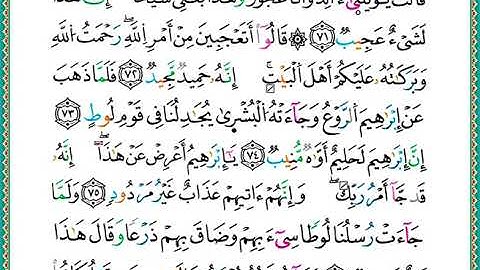 لَشَىْءٌ عَجِيبٌ ۝٧٢ قَالُوٓا۟ أَتَعْجَبِينَ مِنْ أَمْرِ ٱللَّهِ ۖ رَحْمَتُ ٱللَّهِ
وَبَرَكَٰتُهُۥ عَلَيْكُمْ أَهْلَ ٱلْبَيْتِ ۚ إِنَّهُۥ حَمِيدٌ مَّجِيدٌ ۝٧٣ فَلَمَّا ذَهَبَ
عَنْ إِبْرَٰهِيمَ ٱلرَّوْعُ وَجَآءَتْهُ ٱلْبُشْرَىٰ يُجَٰدِلُنَا فِى قَوْمِ لُوطٍ ۝٧٣
إِنَّ إِبْرَٰهِيمَ لَحَلِيمٌ أَوَّٰهٌ مُّنِيبٌ ۝٧٤ يَٰٓإِبْرَٰهِيمُ أَعْرِضْ عَنْ هَٰذَآ ۖ إِنَّهُۥ
قَدْ جَآءَ أَمْرُ رَبِّكَ ۖ وَإِنَّهُمْ ءَاتِيهِمْ عَذَابٌ غَيْرُ مَرْدُودٍ ۝٧٥ وَلَمَّا
جَآءَتْ رُسُلُنَا لُوطًا سِىٓءَ بِهِمْ وَضَاقَ بِهِمْ ذَرْعًا وَقَالَ هَٰذَا